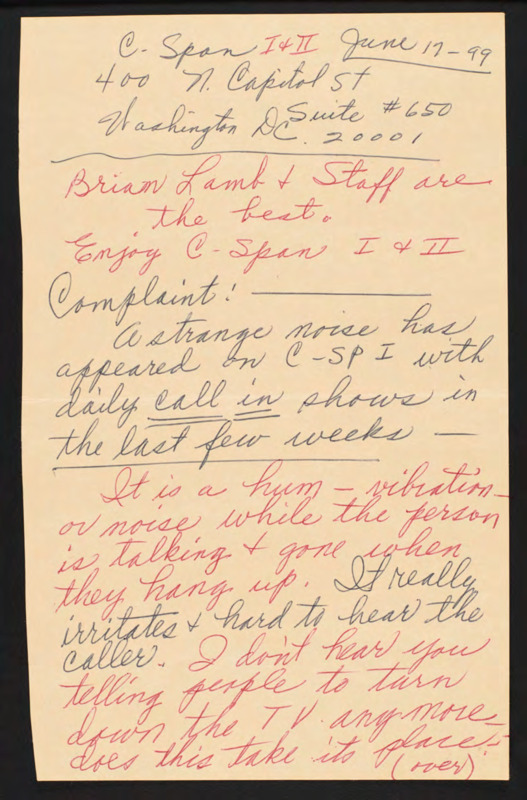 C-Span I & II June 17-99
400 N. Capitol St
Suite #650
Washington DC. 20001
Brian Lamb & Staff are
the best.
Enjoy C-Span I & II
Complaint! ———
A strange noise has
appeared on C-SP I with
daily call in shows in
the last few weeks —
It is a hum - vibration -
or noise while the person
is talking & gone when
they hang up. It really
irritates & hard to hear the
caller. I don't hear you
telling people to turn
down the TV anymore -
does this take its place -
(over)